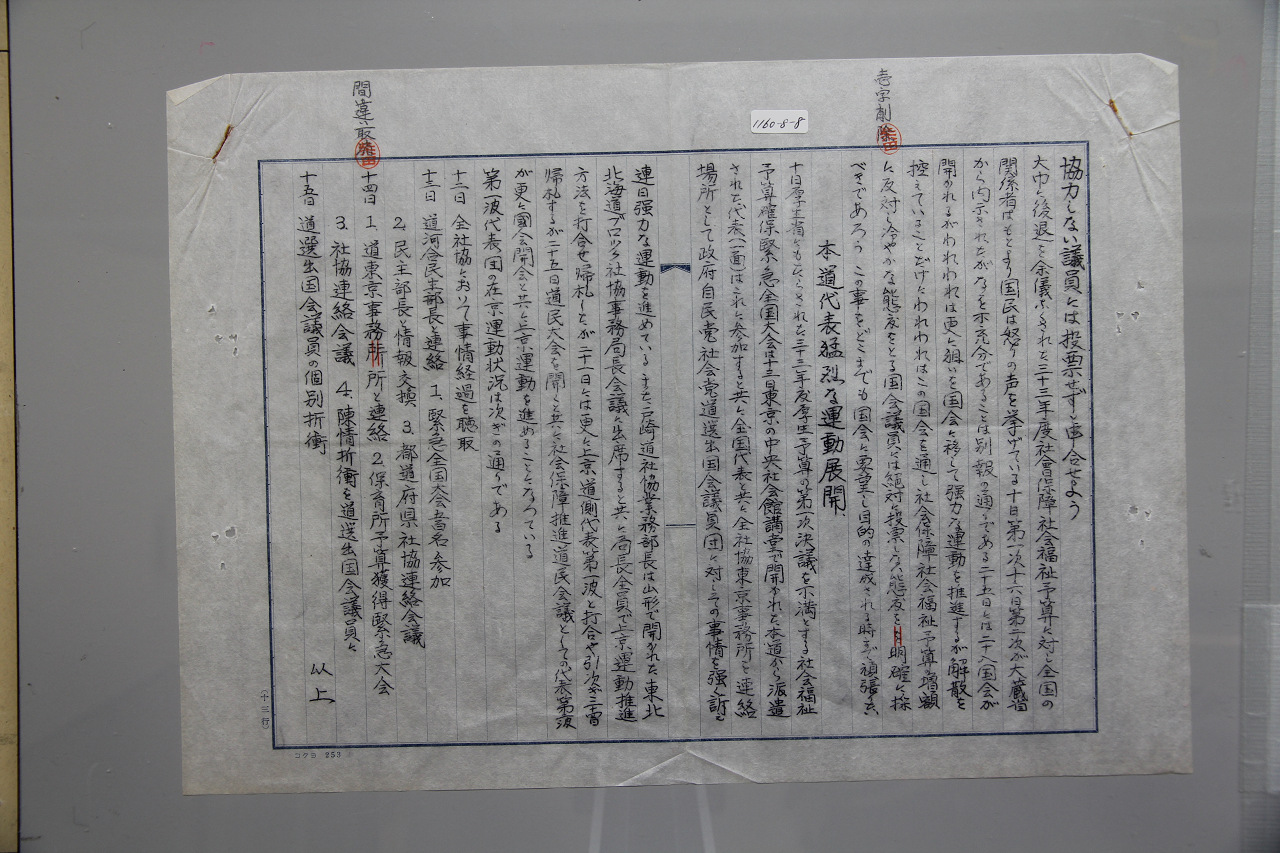 協力しない議員には投票せず申合せよう
大巾に後退を余儀なくされた三十三年度社會保障社会福祉予算に対し全国の
関係者はもとより国民は怒りの声を挙げている十日第一次十六日第二次が大蔵省
から内示されたがなを不充分であることは別報の通りである二十五日には二十八国会が
開かれるがわれわれは更に狙いを国会に移して強力な運動を推進するが解散を
控えていることだけにわれわれはこの国会を通し社会保障社会福祉予算の増額
に反対し冷やかな能度をとる国会議員には絶対に投票しない能度を明確に採
べきであろう この事をどこまでも国会に要望し目的の達成される時まで頑張
本道代表猛烈な運動展開
十日厚生省にもたらされた三十三年度厚生予算の第一次決議を不満とする社会福祉
予算確保緊急全国大会は十三日東京の中央社会館講堂で開かれた本道から派遣
された代表(一面)はこれに参加すると共に全国代表と共に全社協東京事務所と連絡
場所として政府自民党社会党道選出国会議員団に対しその事情を強く訴え
連日強力な運動を進めている また戸崎道社協業務部長は山形で開かれた東北
北海道ブロック社協事務局長会議に出席すると共に局長全員で上京運動推進
方法を打合せ帰札したが二十一日には更に上京道側代表第一波と打合や引次
帰札するが二十五日道民大会を開くと共に社会保障推進道民会議としての代表第二波
が更に國会開会と共に上京運動を進めることになつている
第一波代表団の在京運動状況は次ぎの通りである
十二日 全社協において事情経過を聴取
十三日 道河合民主部長と連絡 1、緊急全国大会書名参加
2、民主部長と情報交換 3、都道府県社協連絡会議
十四日 1、道東京事務所と連絡 2、保育所予算獲得緊急大会
3、社協連絡会議 4、陳情折衝を道選出国会議員に
十五日 道選出国会議員の個別折衝
以上
壱字削除
間違い取
1160-8-8
(十三行)
コクヨ 253